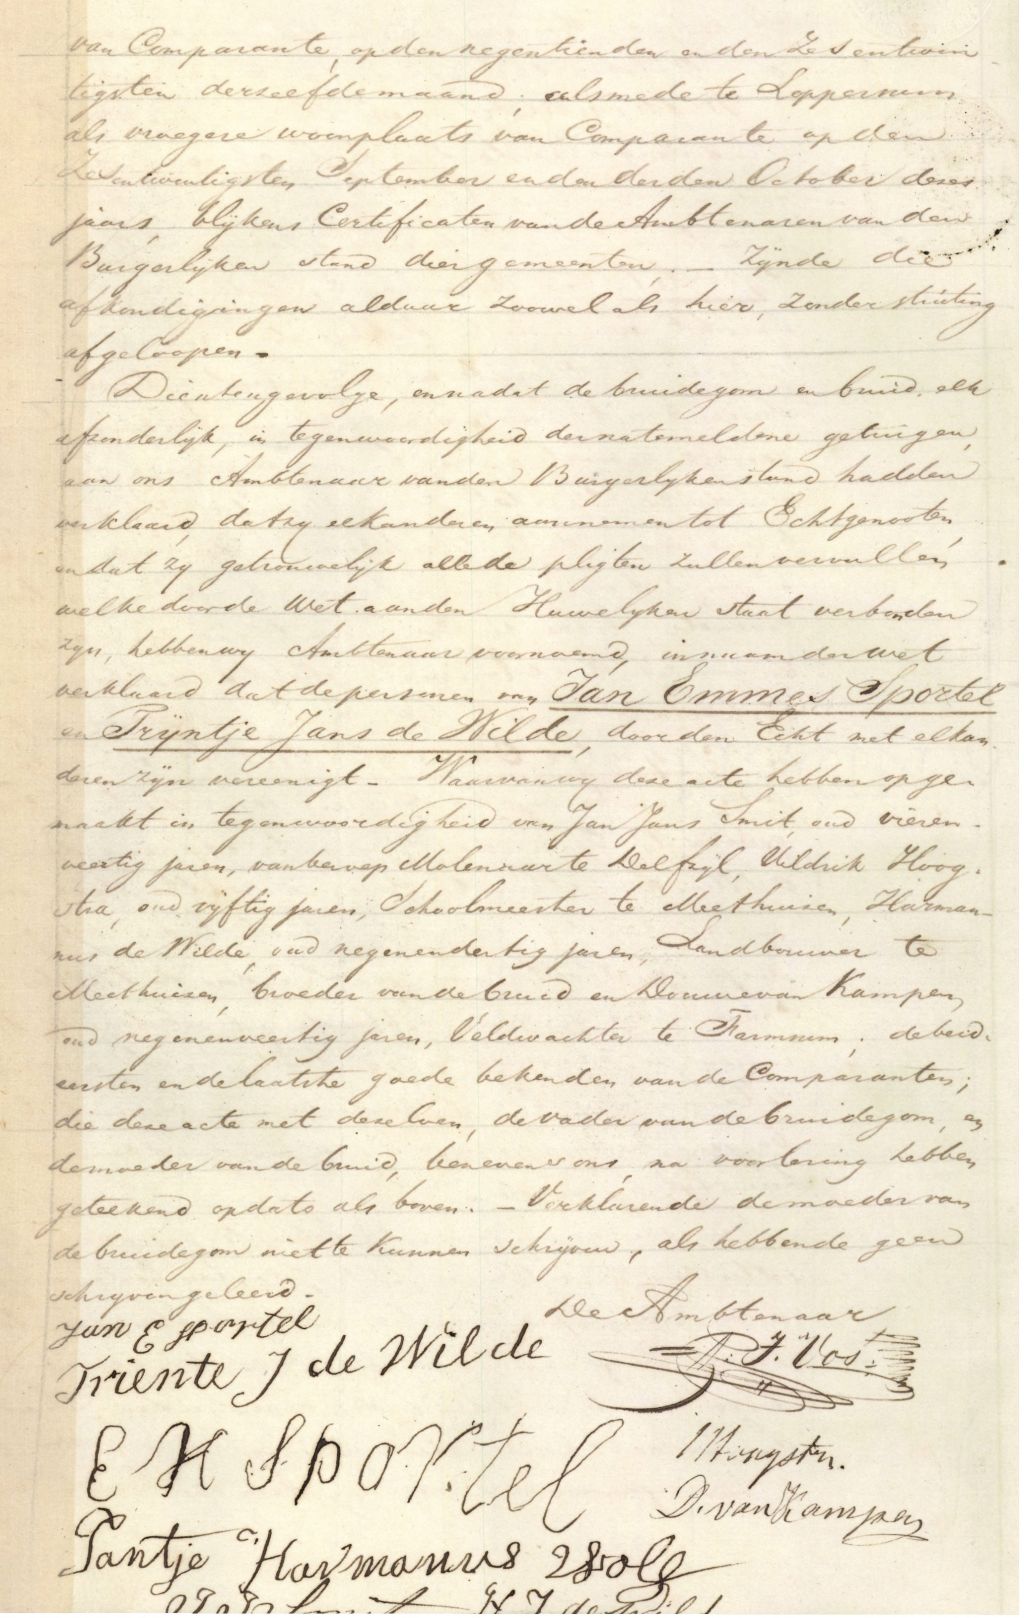 van Comparante, op den negentienden en den Zesentwin
tigsten derzelfde maand; alsmede te Loppersum
als vroegere woonplaats van Comparante op den
Zesentwintigsten September en den derden October dezes
jaars, blijkens Certificaten van de Ambtenaren van den
Burgerlijken stand dier gemeenten, – Zijnde die
afkondigingen aldaar zoowel als hier, zonder stuiting
afgeloopen.
Dientengevolge, en nadat de bruidegom en bruid, elk
afzonderlijk, in tegenwoordigheid der natemeldene getuigen,
aan ons Ambtenaar van den Burgerlyken stand hadden
verklaard, dat zy elkanderen aannemen tot Echtgenooten,
en dat zy getrouwelijk alle de pligten zullen vervullen,
welke door de Wet aan den Huwelyken staat verbonden
zyn, hebben wy Ambtenaar voornoemd, in naam der wet
verklaard dat de personen van Jan Emmes Sportel
en Trijntje Jans de Wilde, door den Echt met elkan
deren zijn vereenigt – Waarvan wy deze acte hebben opge-
maakt in tegenwoordigheid van Jan Jans Smit, oud vieren-
veertig jaren, van beroep Molenaar te Delfzyl, Uildrik Hoog-
stra, oud vyftig jaren, Schoolmeester te Meethuizen, Harman-
nus de Wilde, oud negenendertig jaren, Landbouwer te
Meethuizen, broeder van de bruid en Douwe van Kampen,
oud negenenveertig jaren, Veldwachter te Farmsum; de beid-
eersten en de laatste goede bekenden van de Comparanten;
die deze acte met dezelven, de vader van de bruidegom, en
de moeder van de bruid, benevens ons, na voorlezing hebben
geteekend op dato als boven. – Verklarende de moeder van
de bruidegom niet te kunnen schrijven, als hebbende geen
schryven geleerd.
Jan E Sportel De Ambtenaar
Triente J de Wilde P. J. Vos.
E H Sportel Hoogstra.
D. van Kampen
Pantje Harmannus
Smit H J de Wild